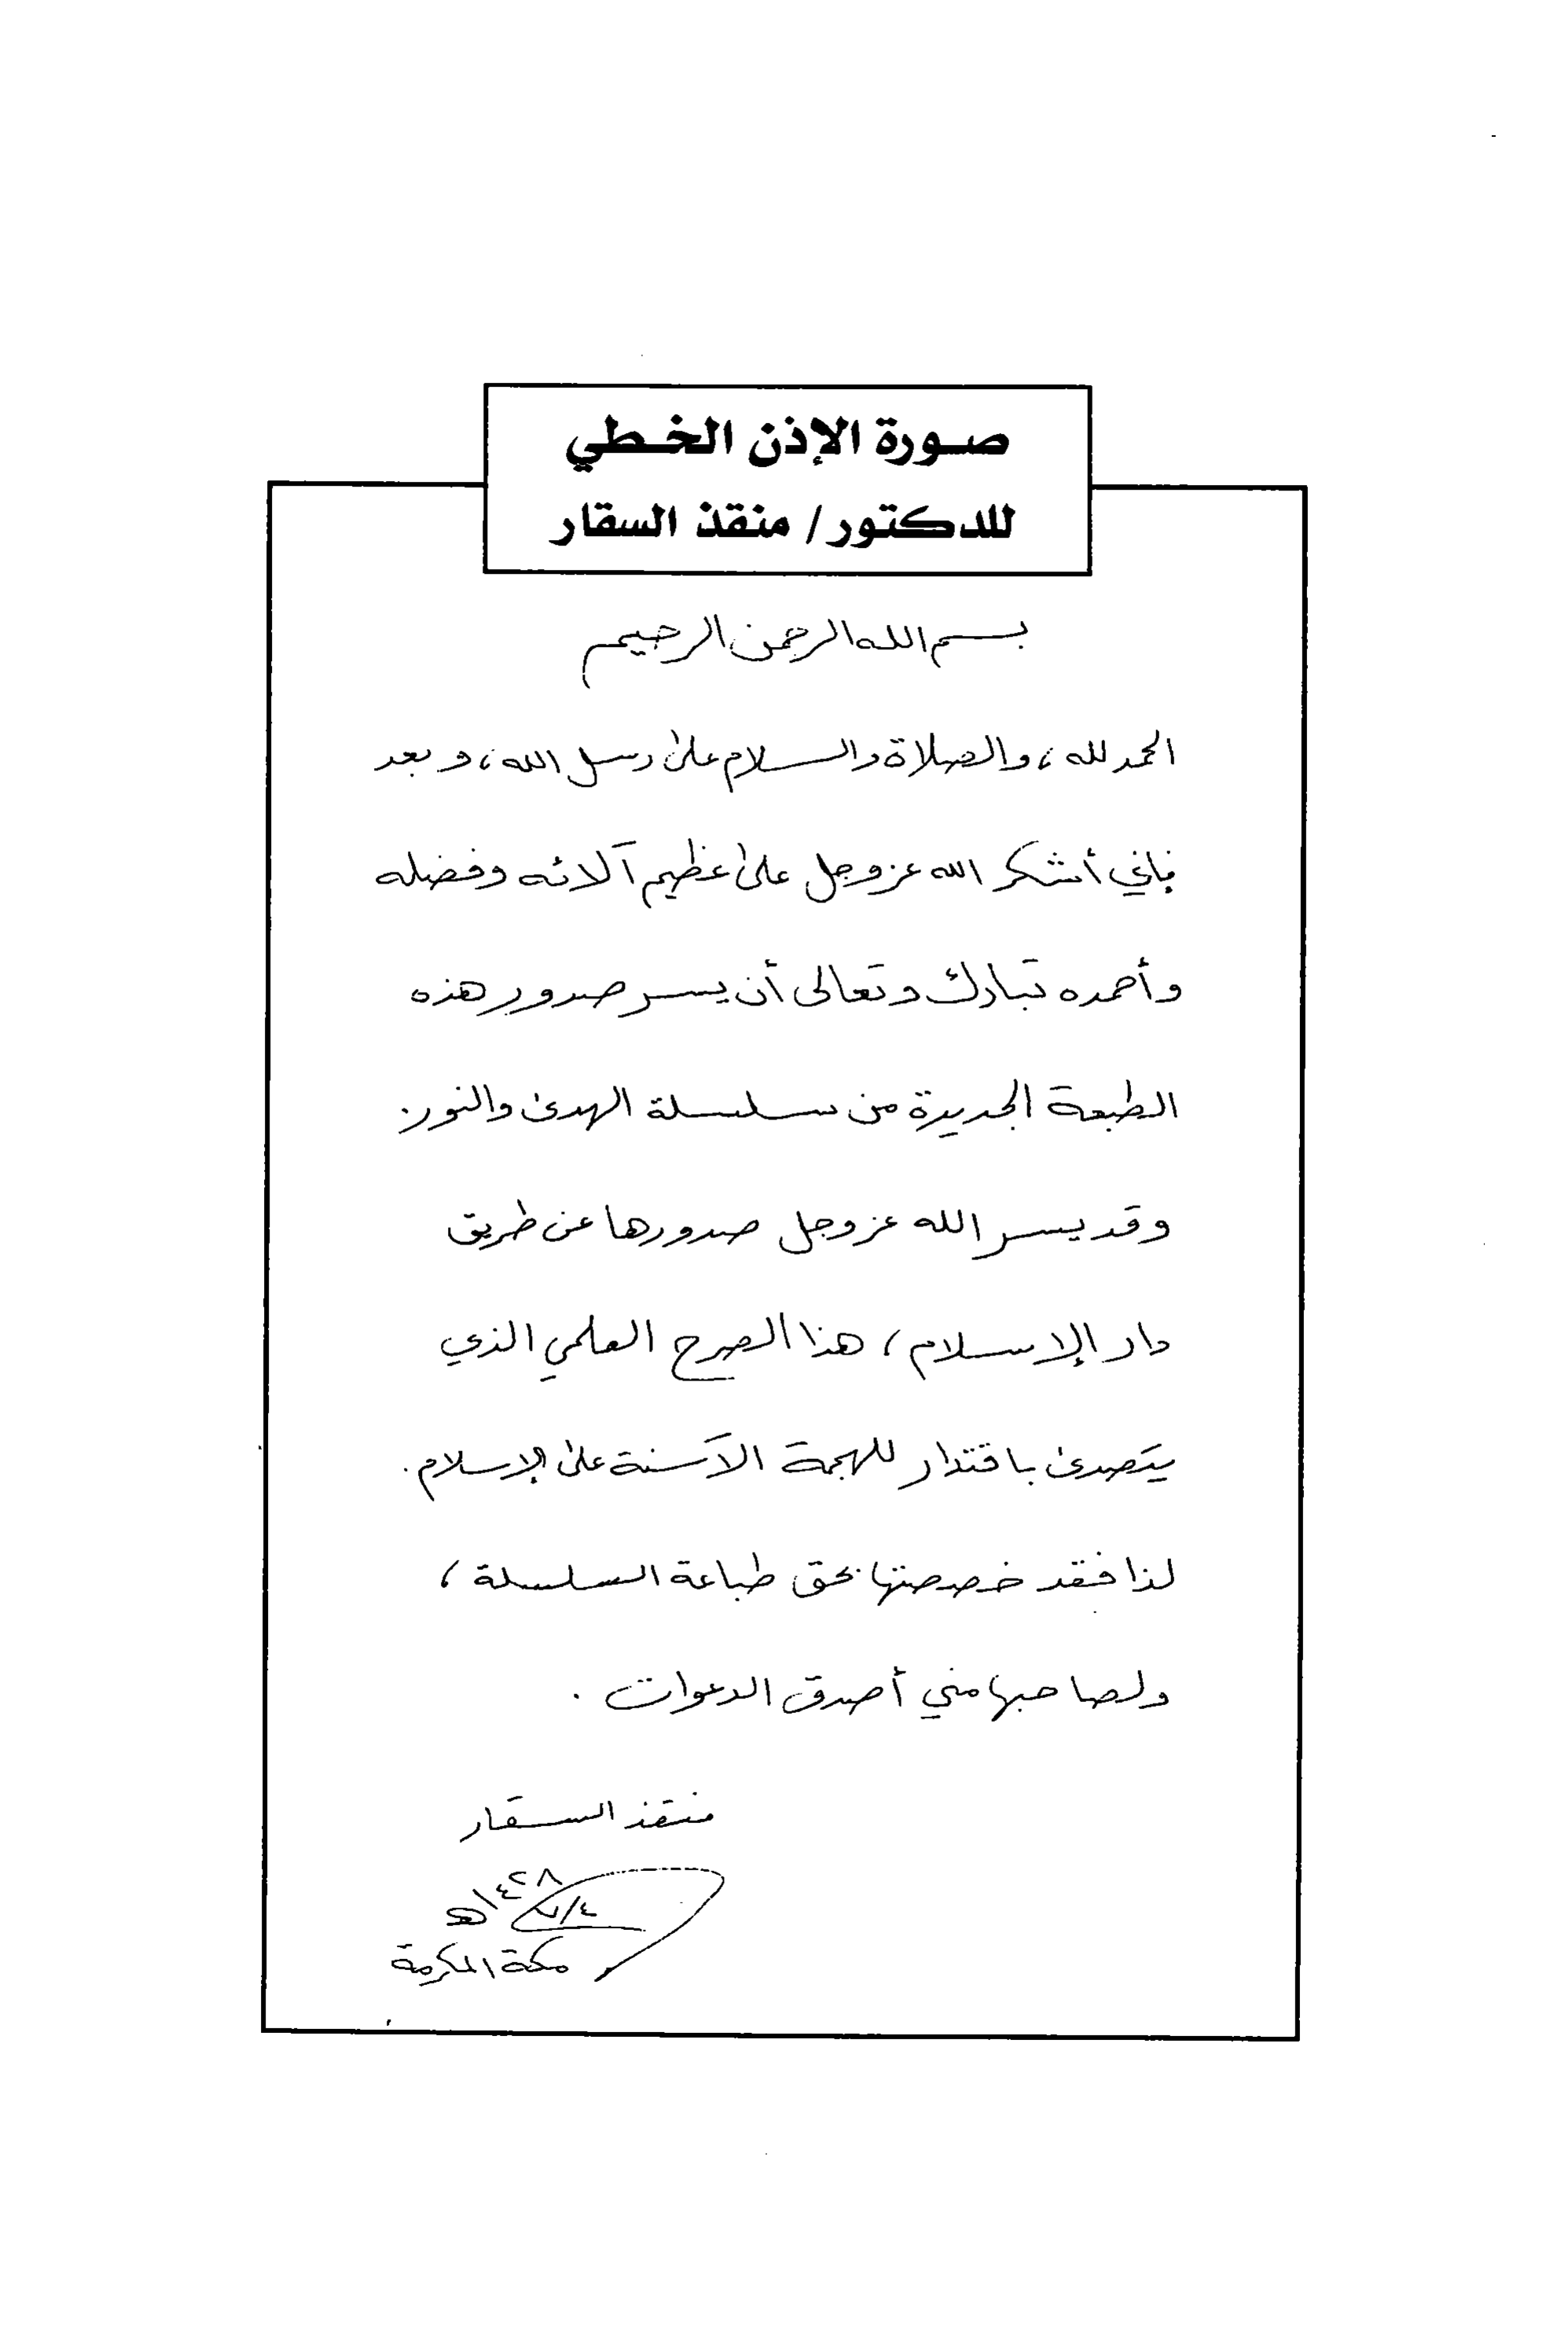 صورة الإذن الخطي
للدكتور/ منقذ السقار
بسم الله الرحمن الرحيم
الحمد لله، والصلاة والسلام على رسل الله، وبعد
فإني أشكر الله عز وجل على عظيم آلائه وفضله
وأحمده تبارك وتعالى أن يسر صدور هذه
الطبعة الجديدة من سلسلة الهدى والنور.
وقد يسر الله عز وجل صدورها عن طريق
دار الإسلام، هذا الصرح العلمي الذي
يتصدى باقتدار للهجمة الآسنة على الإسلام.
لذا فقد خصصتها بحق طباعة السلسلة،
ولصاحبها مني أصدق الدعوات.
منقذ السقار
١٤٢٨هـ
مكة المكرمة